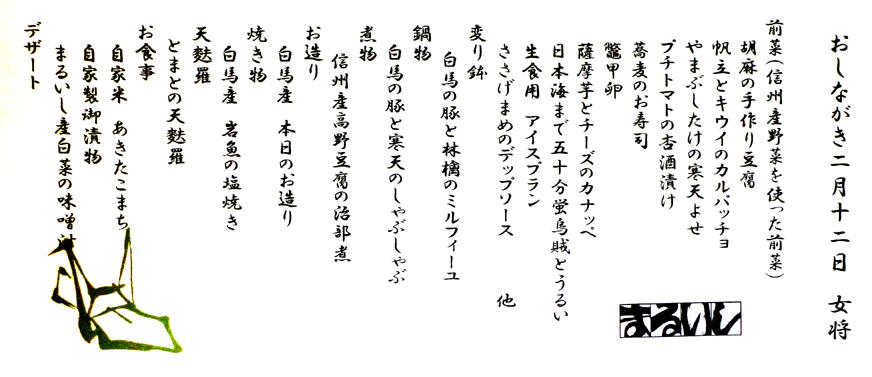 おしながき二月十二日 女将
前菜(信州産野菜を使った前菜)
胡麻の手作り豆腐
帆立とキウイのカルパッチョ
やまぶしたけの寒天よせ
プチトマトの杏酒漬け
蕎麦のお寿司
鼈甲卵
薩摩芋とチーズのカナッペ
日本海まで五十分蛍烏賊とうるい
生食用 アイスプラン
ささげまめのデップソース 他
変り鉢
白馬の豚と林檎のミルフィーユ
鍋物
白馬の豚と寒天のしゃぶしゃぶ
煮物
信州産高野豆腐の治部煮
お造り
白馬産 本日のお造り
焼き物
白馬産 岩魚の塩焼き
天麩羅
とまとの天麩羅
お食事
自家米 あきたこまち
自家製御漬物
まるいし産白菜の味噌汁
デザート
まるいし